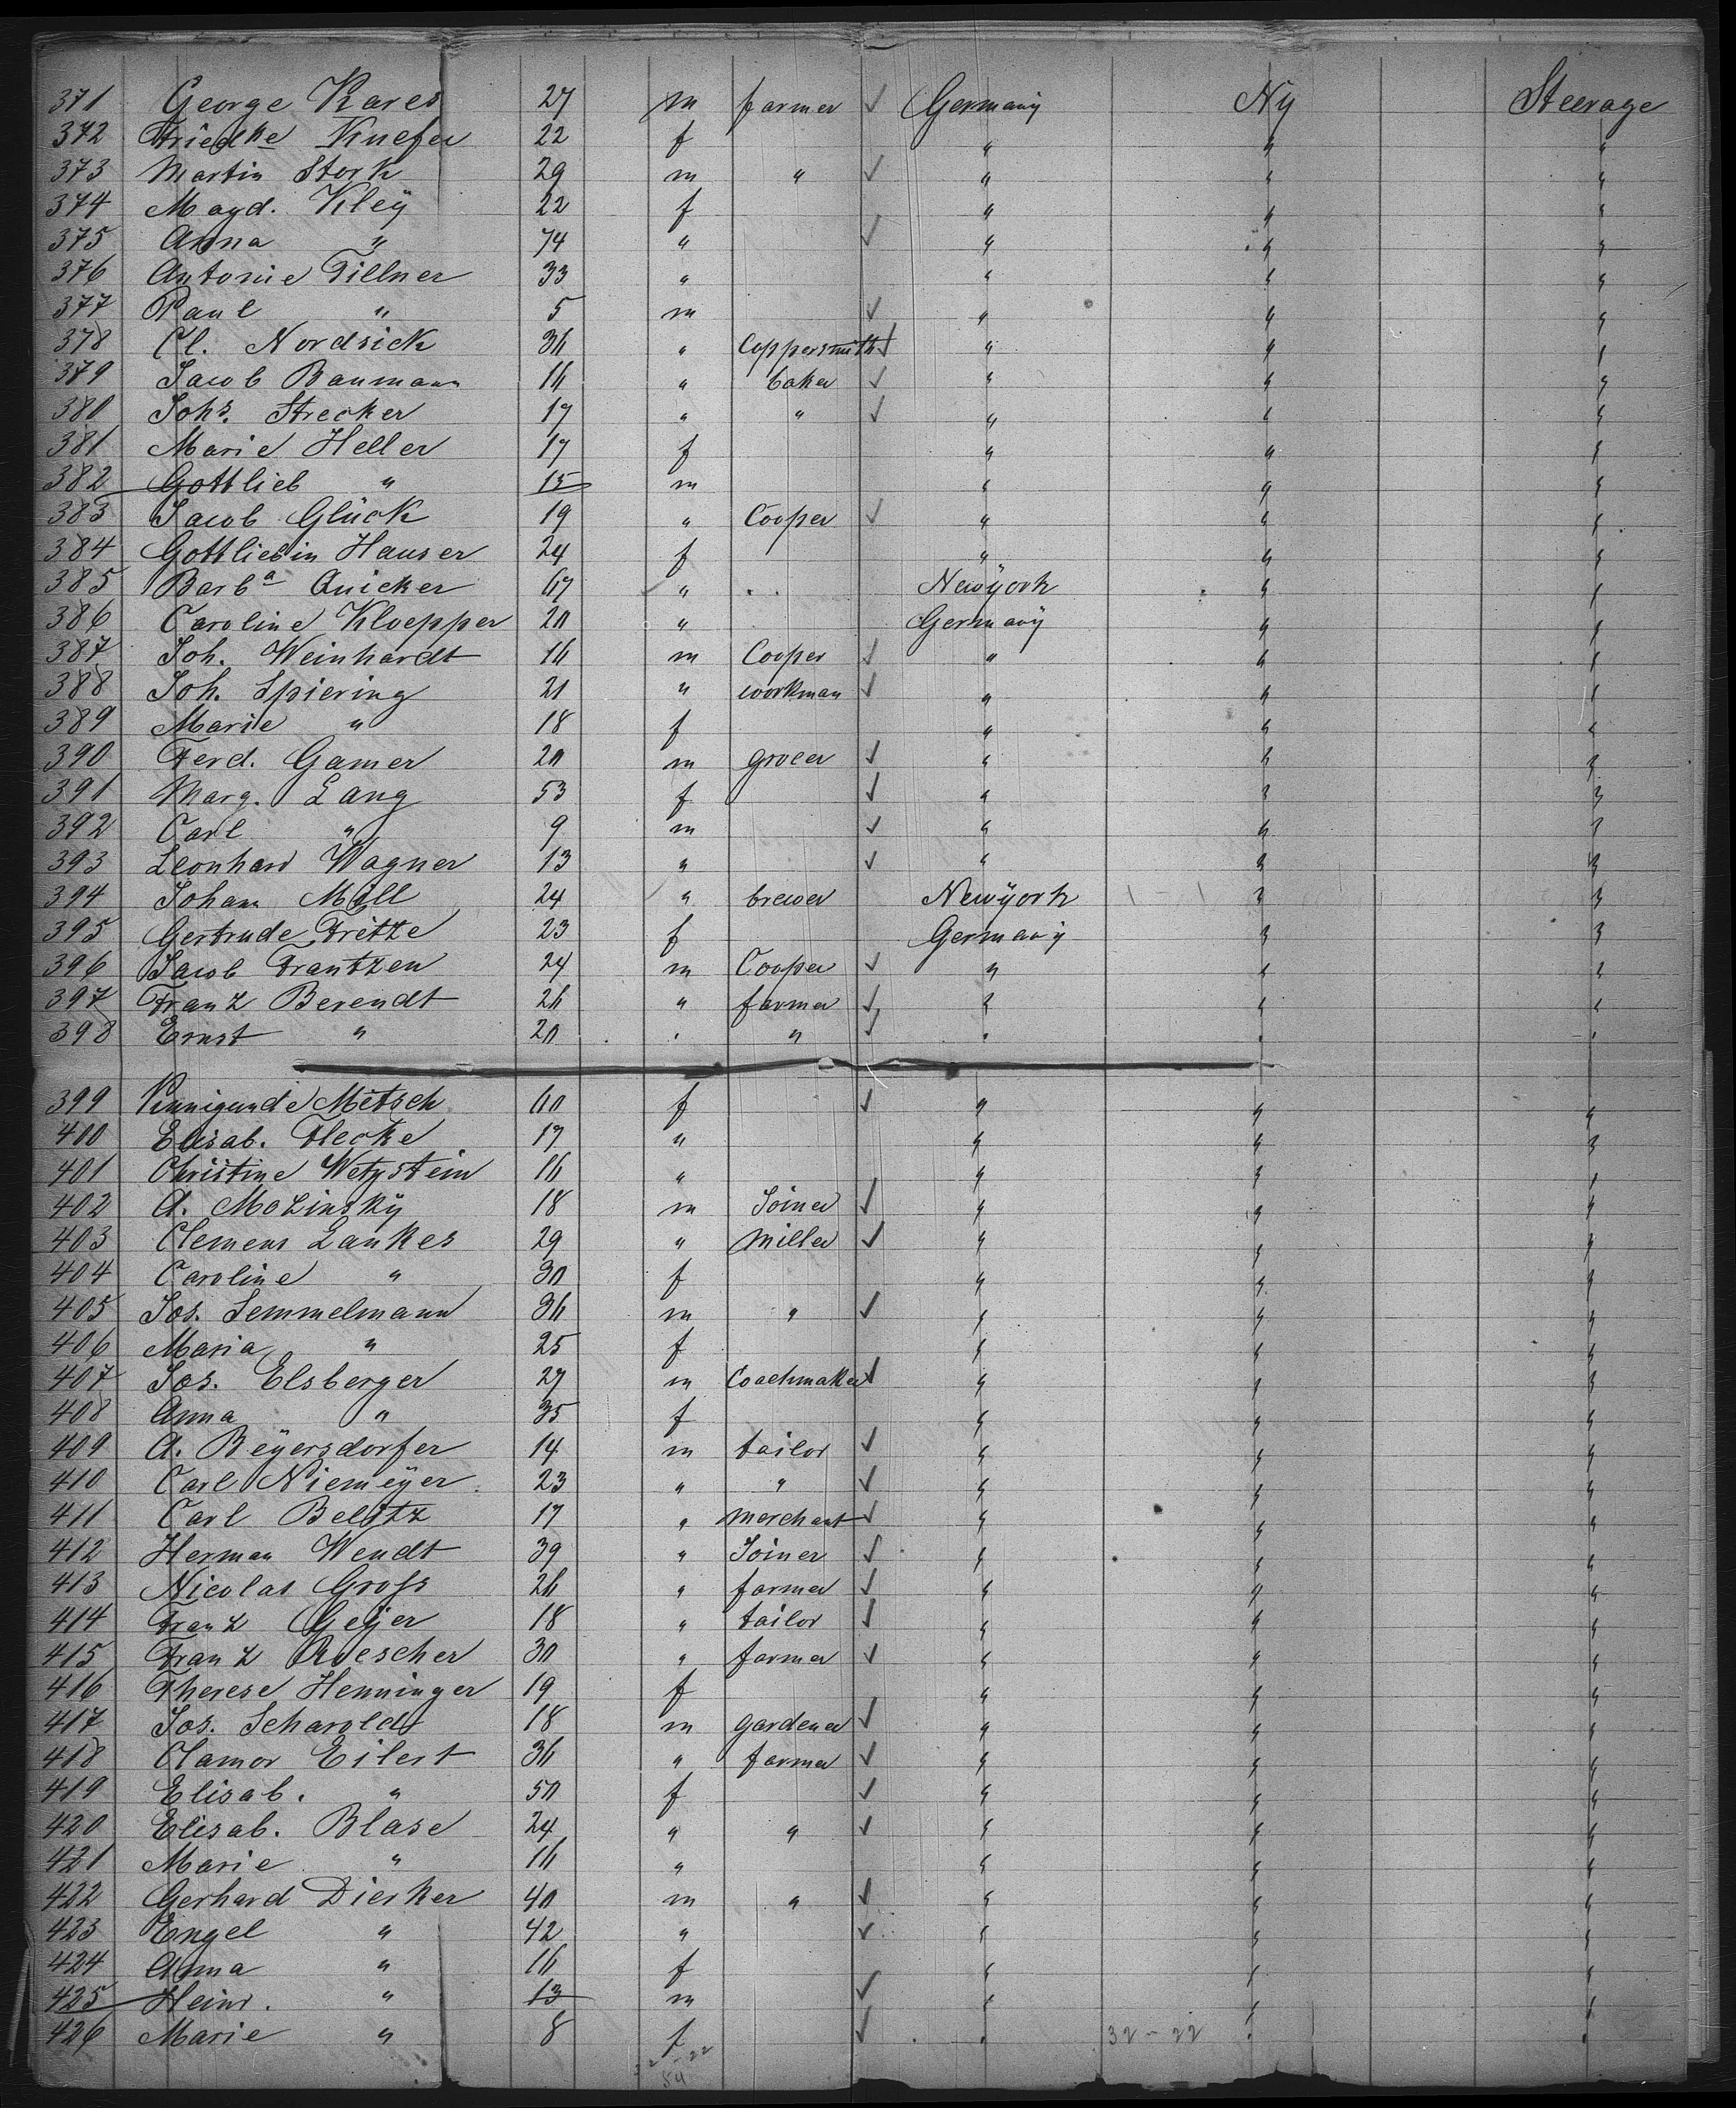 371 George Kares 27 m farmer ✓ Germany Ny Steerage
372 Friedke Knefer 22 f " " "
373 Martin Stork 29 m " ✓ " " "
374 Magd. Kleÿ 22 f " " "
375 Anna " 74 " ✓ " " "
376 Antonie Tillner 33 " " " "
377 Paul " 5 m ✓ " " "
378 Cl. Nordsick 36 " Coppersmith ✓ " " "
379 Jacob Baumann 16 " baker ✓ " " "
380 Johs. Strecker 17 " " ✓ " " "
381 Marie Heller 17 f " " "
382 Gottlieb " 15 m " " "
383 Jacob Glück 19 " Cooper ✓ " " "
384 Gottliebin Hauser 24 f " " "
385 Barba Quicker 67 " Newÿork " "
386 Caroline Kloepper 20 " Germanÿ " "
387 Joh. Weinhardt 16 m Cooper ✓ " " "
388 Joh. Spiering 21 " workman ✓ " " "
389 Marie " 18 f " " "
390 Ferd. Gamer 20 m grocer ✓ " " "
391 Marg. Lang 53 f ✓ " " "
392 Carl " 9 m ✓ " " "
393 Leonhard Wagner 13 " ✓ " " "
394 Johann Möll 24 " brewer Newÿork " "
395 Gertrude Fritze 23 f Germany " "
396 Jacob Frantzen 24 m Cooper ✓ " " "
397 Franz Berendt 26 " farmer ✓ " " "
398 Ernst " 20 " " ✓ " " "
399 Kunigunde Metsch 60 f ✓ " " "
400 Elisab. Flecke 17 " " " "
401 Christine Wetzstein 16 " " " "
402 A. Mozinskÿ 18 m Joiner ✓ " " "
403 Clemens Lankes 29 " Miller ✓ " " "
404 Caroline " 30 f " " "
405 Jos. Semmelmann 36 m " ✓ " " "
406 Maria " 25 f " " "
407 Jos. Elsberger 27 m Coachmaker ✓ " " "
408 Anna " 35 f " " "
409 A. Beÿersdorfer 14 m tailor ✓ " " "
410 Carl Niemeÿer 23 " " ✓ " " "
411 Carl Belitz 17 " merchant ✓ " " "
412 Herman Wendt 39 " Joiner ✓ " " "
413 Nicolas Groſs 26 " farmer ✓ " " "
414 Franz Geÿer 18 " tailor ✓ " " "
415 Franz Roescher 30 " farmer ✓ " " "
416 Therese Henninger 19 f " " "
417 Jos. Scharoldt 18 m gardener ✓ " " "
418 Clamor Eilert 36 " farmer ✓ " " "
419 Elisab. " 50 f ✓ " " "
420 Elisab. Blase 24 " " ✓ " " "
421 Marie " 16 " " " "
422 Gerhard Dierker 40 m " ✓ " " "
423 Engel " 42 " ✓ " " "
424 Anna " 16 f " " "
425 Heinr. " 13 m ✓ " " "
426 Marie " 8 f ✓ " " "
32 - 22
32 - 22
54